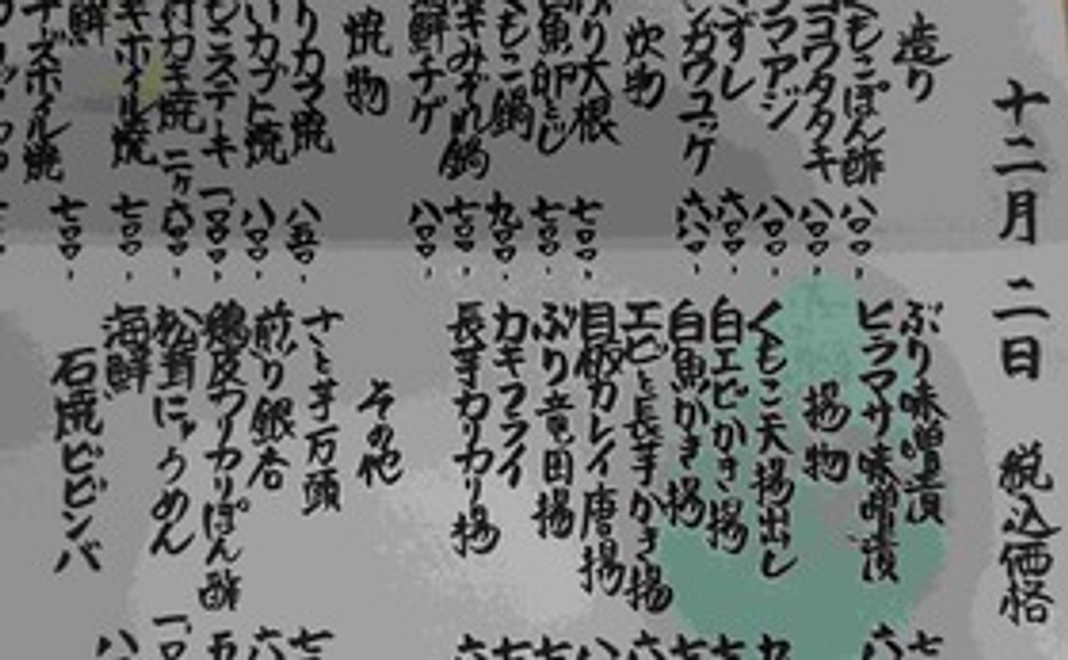 十二月 二日 税込価格
造り
くもこぽん酢 八〇〇、
ヨコワタタキ 八〇〇、
シマアジ 八〇〇、
きずし 六〇〇、
炊物
ぶり大根 七〇〇、
白魚卵とじ 七〇〇、
くもこ鍋 九〇〇、
カキみぞれ鍋 七〇〇、
海鮮チゲ 八〇〇、
焼物
ぶりカマ焼 八五〇、
いカブト焼 八〇〇、
くもこステーキ 一一〇〇、
殻付カキ焼 二ヶ 六〇〇、
カキホイル焼 七〇〇、
海鮮
チーズホイル焼 七〇〇、
ぶり味噌漬
ヒラマサ味噌漬
揚物
くもこ天揚出し
白エビかき揚
白魚かき揚
エビと長芋かき揚
目板カレイ唐揚
ぶり竜田揚
カキフライ
長芋カリカリ揚
その他
さと芋万頭
煎り銀杏
鶏皮カリカリぽん酢
松茸にゅうめん
海鮮
石焼ビビンバ